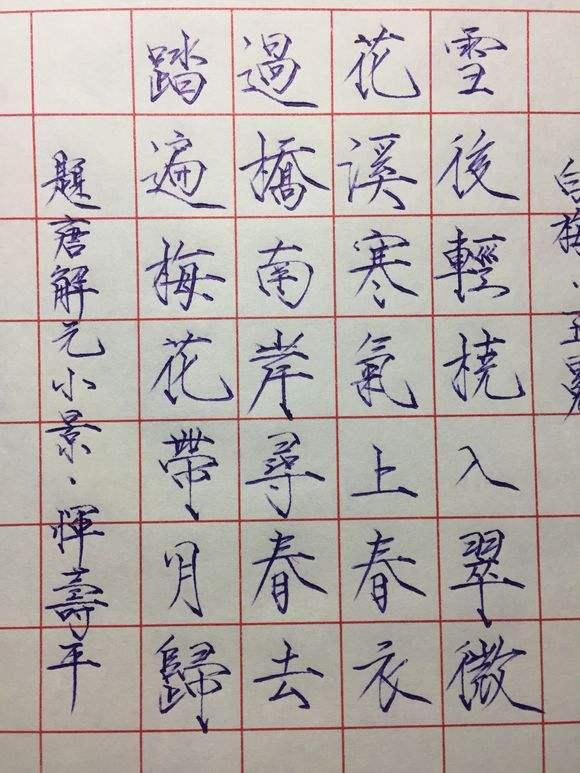 白梅·王冕
雪後輕橈入翠微
花溪寒氣上春衣
過橋南岸尋春去
踏遍梅花帶月歸
題唐解元小景·惲壽平